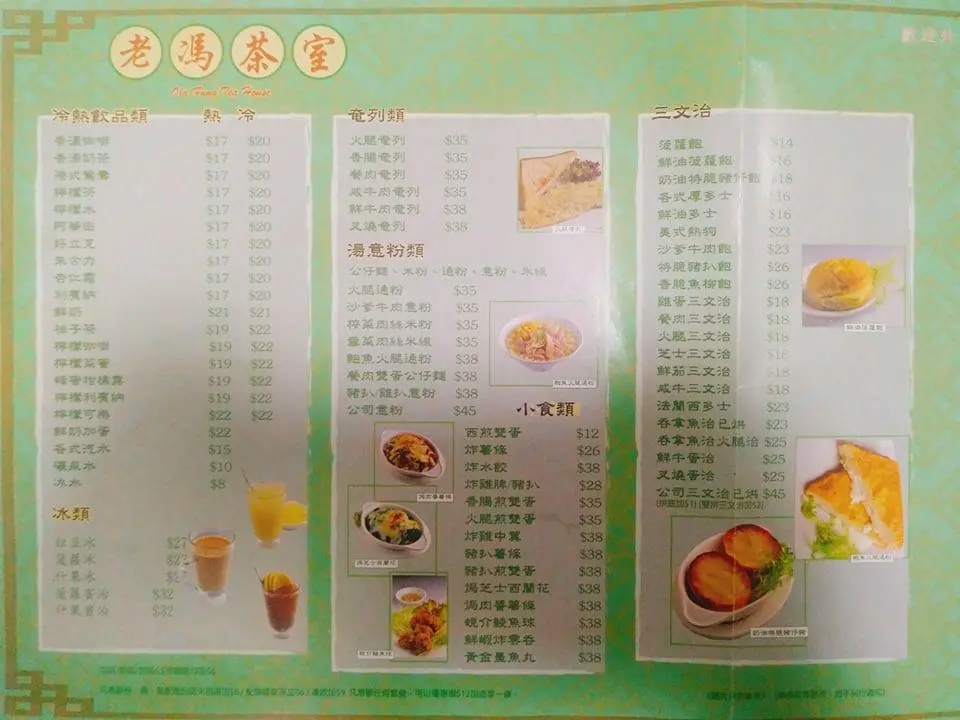 老馮茶室
Old Fung Tea House
冷熱飲品類 熱 冷
香濃咖啡 $17 $20
香濃奶茶 $17 $20
港式鴛鴦 $17 $20
檸檬茶 $17 $20
檸檬水 $17 $20
阿華田 $17 $20
好立克 $17 $20
朱古力 $17 $20
杏仁霜 $17 $20
利賓納 $17 $20
鮮奶 $21 $21
柚子茶 $19 $22
檸檬咖啡 $19 $22
檸檬菜蜜 $19 $22
蜂蜜柑桔露 $19 $22
檸檬利賓納 $19 $22
檸檬可樂 $22 $22
鮮奶加蛋 $22
各式汽水 $15
礦泉水 $10
冰水 $8
冰類
紅豆冰 $27
菠蘿冰
什果冰
菠蘿賓治 $32
什果賓治 $32
奄列類
火腿奄列 $35
香腸奄列 $35
餐肉奄列 $35
咸牛肉奄列 $35
鮮牛肉奄列 $38
叉燒奄列 $38
湯意粉類
公仔麵、米粉、通粉、意粉、米線
火腿通粉 $35
沙爹牛肉意粉 $35
榨菜肉絲米粉 $35
雪菜肉絲米線 $35
鮑魚火腿通粉 $38
餐肉雙蛋公仔麵 $38
豬扒/雞扒意粉 $38
公司意粉 $45
鮑魚火腿通粉
小食類
西煎雙蛋 $12
炸薯條 $26
炸水餃 $38
炸雞脾/豬扒 $28
香腸煎雙蛋 $35
火腿煎雙蛋 $35
炸雞中翼 $38
豬扒薯條 $38
豬扒煎雙蛋 $38
焗芝士西蘭花 $38
焗肉醬薯條 $38
蜆介鯪魚球 $38
鮮蝦炸雲吞 $38
黃金墨魚丸 $38
焗肉醬薯條
焗芝士西蘭花
蜆介鯪魚球
三文治
菠蘿飽 $14
鮮油菠蘿飽 $16
奶油特脆豬仔飽 $18
各式厚多士 $16
鮮油多士 $16
美式熱狗 $23
沙爹牛肉飽 $23
特脆豬扒飽 $26
香脆魚柳飽 $26
雞蛋三文治 $18
餐肉三文治 $18
火腿三文治 $18
芝士三文治 $18
鮮茄三文治 $18
咸牛三文治 $18
法蘭西多士 $23
吞拿魚治已烘 $23
吞拿魚治火腿治 $25
鮮牛蛋治 $25
叉燒蛋治 $25
公司三文治已烘 $45
(烘底加$1) (雙拼三文治加$2)
鮮油菠蘿飽
奶油特脆豬仔飽
歡迎外